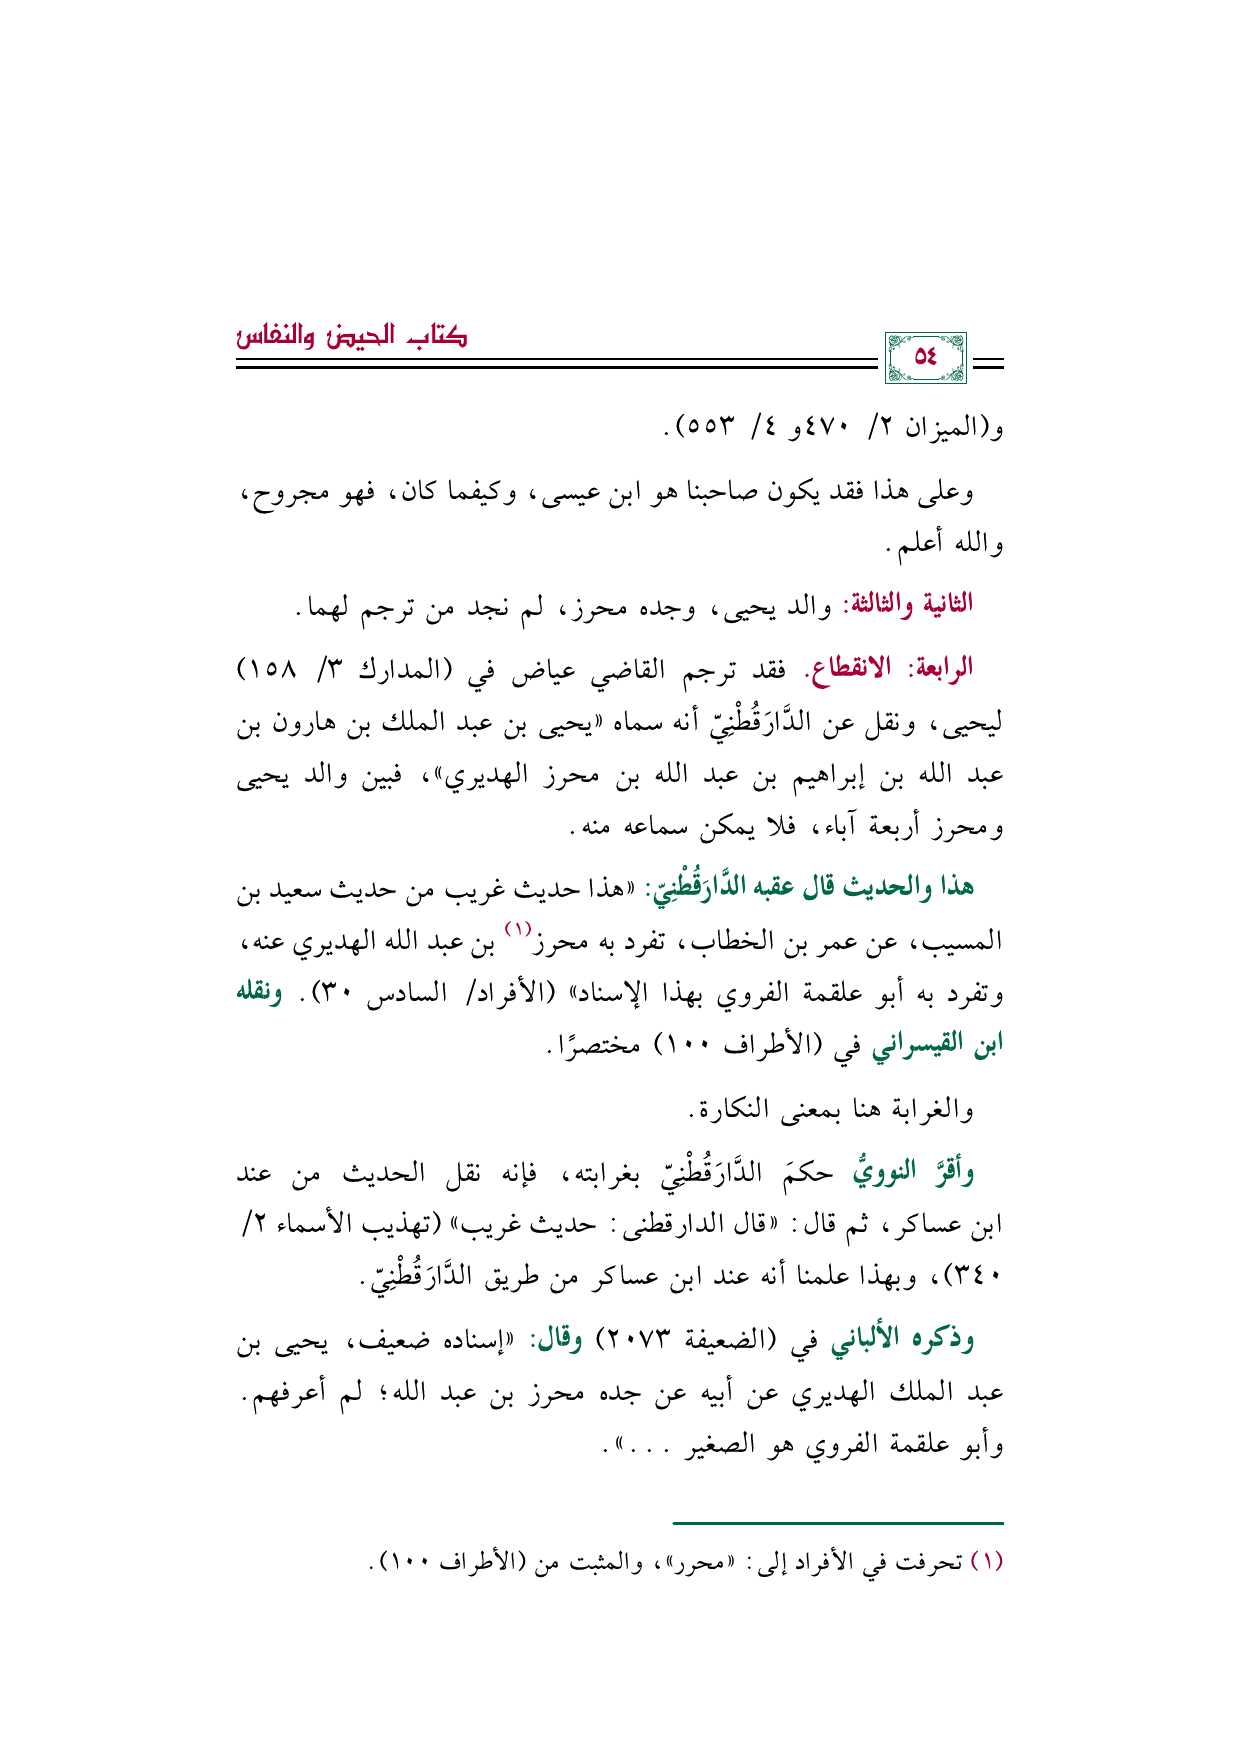 كتاب الحيض والنفاس
٥٤
و(الميزان ٢/ ٤٧٠و ٤/ ٥٥٣).
وعلى هذا فقد يكون صاحبنا هو ابن عيسى، وكيفما كان، فهو مجروح،
والله أعلم.
الثانية والثالثة: والد يحيى، وجده محرز، لم نجد من ترجم لهما.
الرابعة: الانقطاع. فقد ترجم القاضي عياض في (المدارك ٣/ ١٥٨)
ليحيى، ونقل عن الدَّارَقُطْنِيّ أنه سماه «يحيى بن عبد الملك بن هارون بن
عبد الله بن إبراهيم بن عبد الله بن محرز الهديري»، فبين والد يحيى
ومحرز أربعة آباء، فلا يمكن سماعه منه.
هذا والحديث قال عقبه الدَّارَقُطْنِيّ: «هذا حديث غريب من حديث سعيد بن
المسيب، عن عمر بن الخطاب، تفرد به محرز(١) بن عبد الله الهديري عنه،
وتفرد به أبو علقمة الفروي بهذا الإسناد» (الأفراد/ السادس ٣٠). ونقله
ابن القيسراني في (الأطراف ١٠٠) مختصرًا.
والغرابة هنا بمعنى النكارة.
وأقرَّ النوويُّ حكمَ الدَّارَقُطْنِيّ بغرابته، فإنه نقل الحديث من عند
ابن عساكر، ثم قال: «قال الدارقطنى: حديث غريب» (تهذيب الأسماء ٢/
٣٤٠)، وبهذا علمنا أنه عند ابن عساكر من طريق الدَّارَقُطْنِيّ.
وذكره الألباني في (الضعيفة ٢٠٧٣) وقال: «إسناده ضعيف، يحيى بن
عبد الملك الهديري عن أبيه عن جده محرز بن عبد الله؛ لم أعرفهم.
وأبو علقمة الفروي هو الصغير ...».
(١) تحرفت في الأفراد إلى: «محرر»، والمثبت من (الأطراف ١٠٠).